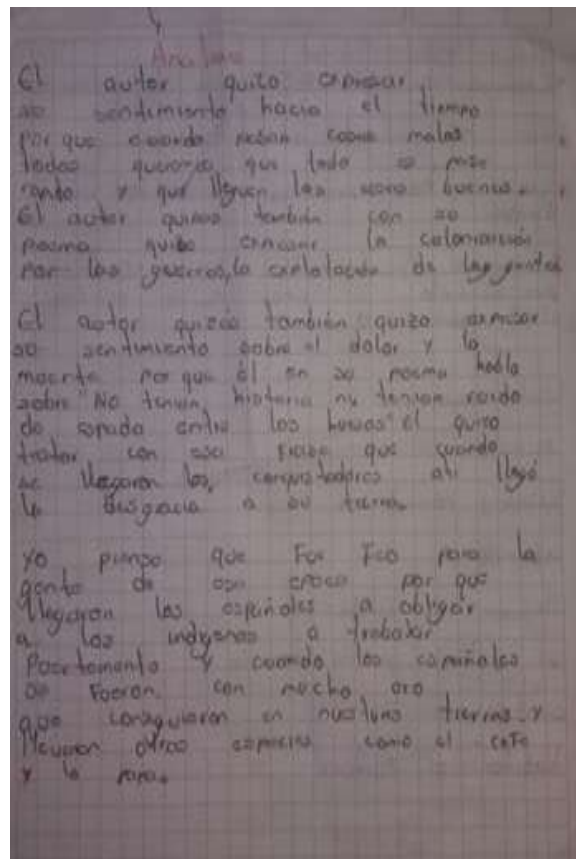 Analisis
El autor quizo expresar
so sentimiento hacia el tiempo
por que cuando pasan cosas malas
todos queremos que todo se pase
rapido y que lleguen las cosas buenas.
El autor quizas también con so
poema quizo expresar la colonización
por las guerras, la explotación de las gentes
El autor quizás también quizo expresar
so sentimiento sobre el dolor y la
moerte por que él en so poema habla
sobre "No tenian historia ni tenian ruido
de espada entre los huesos" él quizo
tratar con esa frase que cuando
se llegaron los conquistadores ahi llegó
la desgracia a su tierra.
Yo pienso que Fue Feo para la
gente de esa epoca por que
llegaron los españoles a obligar
a los indigenas a trabajar
Foertemente y cuando los españoles
se Fueron con mucho oro
que consiguieron en nuestras tierras y
llevaron otras especies como el cafe
y la papa.